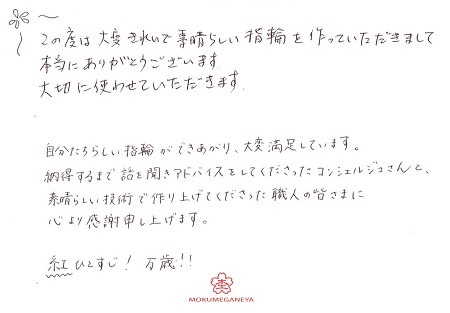 この度は大変きれいで素晴らしい指輪を作っていただきまして
本当にありがとうございます
大切に使わせていただきます。
自分たちらしい指輪ができあがり、大変満足しています。
納得するまで話を聞きアドバイスをしてくださったコンシェルジュさんと、
素晴らしい技術で作り上げてくださった職人の皆さまに
心より感謝申し上げます。
紅ひとすじ! 万歳!!
MOKUMEGANEYA